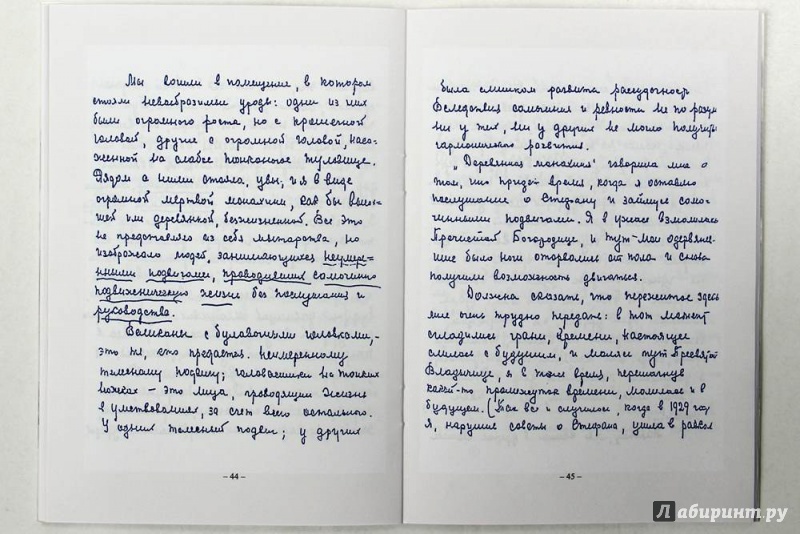 Мы вошли в помещение, в котором
стояли невообразимые уроды: одни из них
были огромного роста, но с крошечной
головой, другие с огромной головой, наса-
женной на слабое тоненькое туловище.
Рядом с ними стояла, увы, и я в виде
огромной мертвой монахини, как бы высох-
шей или деревянной, безжизненной. Все это
не представляло из себя мытарства, но
изображало людей, занимающихся неумерен-
ными подвигами, проводивших самочинно
подвижническую жизнь без послушания и
руководства.
Великаны с булавочными головками,-
это те, кто предается неумеренному
телесному подвигу; головастики на тонких
ножках – это лица, проводящие жизнь
в умствованиях, за счет всего остального.
У одних телесный подвиг; у других
– 44 –
была слишком развита рассудочность
Вследствие самочиния и ревности не по разуму
ни у тех, ни у других не могло получиться
гармонического развития.
„Деревянная монахиня" говорила мне о
том, что придет время, когда я оставлю
послушание о. Стефану и займусь само-
чинными подвигами. Я в ужасе взмолилась
Пречистой Богородице, и тут мои одервянев-
шие было ноги оторвались от пола и снова
получили возможность двигаться.
Должна сказать, что пережитое здесь
мне очень трудно передать: в тот момент
сгладились грани времени, настоящее
слилось с будущим, и молясь тут Пресвятой
Владычице, я в тоже время, перешагнув
какой-то промежуток времени, молилась и в
будущем. (Так все и случилось, когда в 1929 году
я, нарушив советы о. Стефана, ушла в раскол
– 45 –
Лабиринт.ру